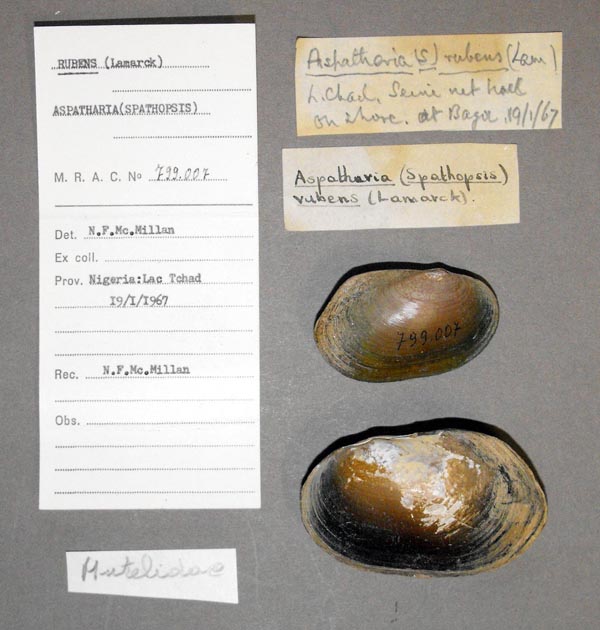 RUBENS (Lamarck)
ASPATHARIA(SPATHOPSIS)
M. R. A. C. No 799.007
Det. N.F.Mc.Millan
Ex coll.
Prov. Nigeria:Lac Tchad
19/I/1967
Rec. N.F.Mc.Millan
Obs.
Mutelidae
Aspatharia (S) rubens (Lam)
L. Chad. Seine net haul
on shore. at Baga. 19/1/67
Aspatharia (Spathopsis)
rubens (Lamarck).
799.007